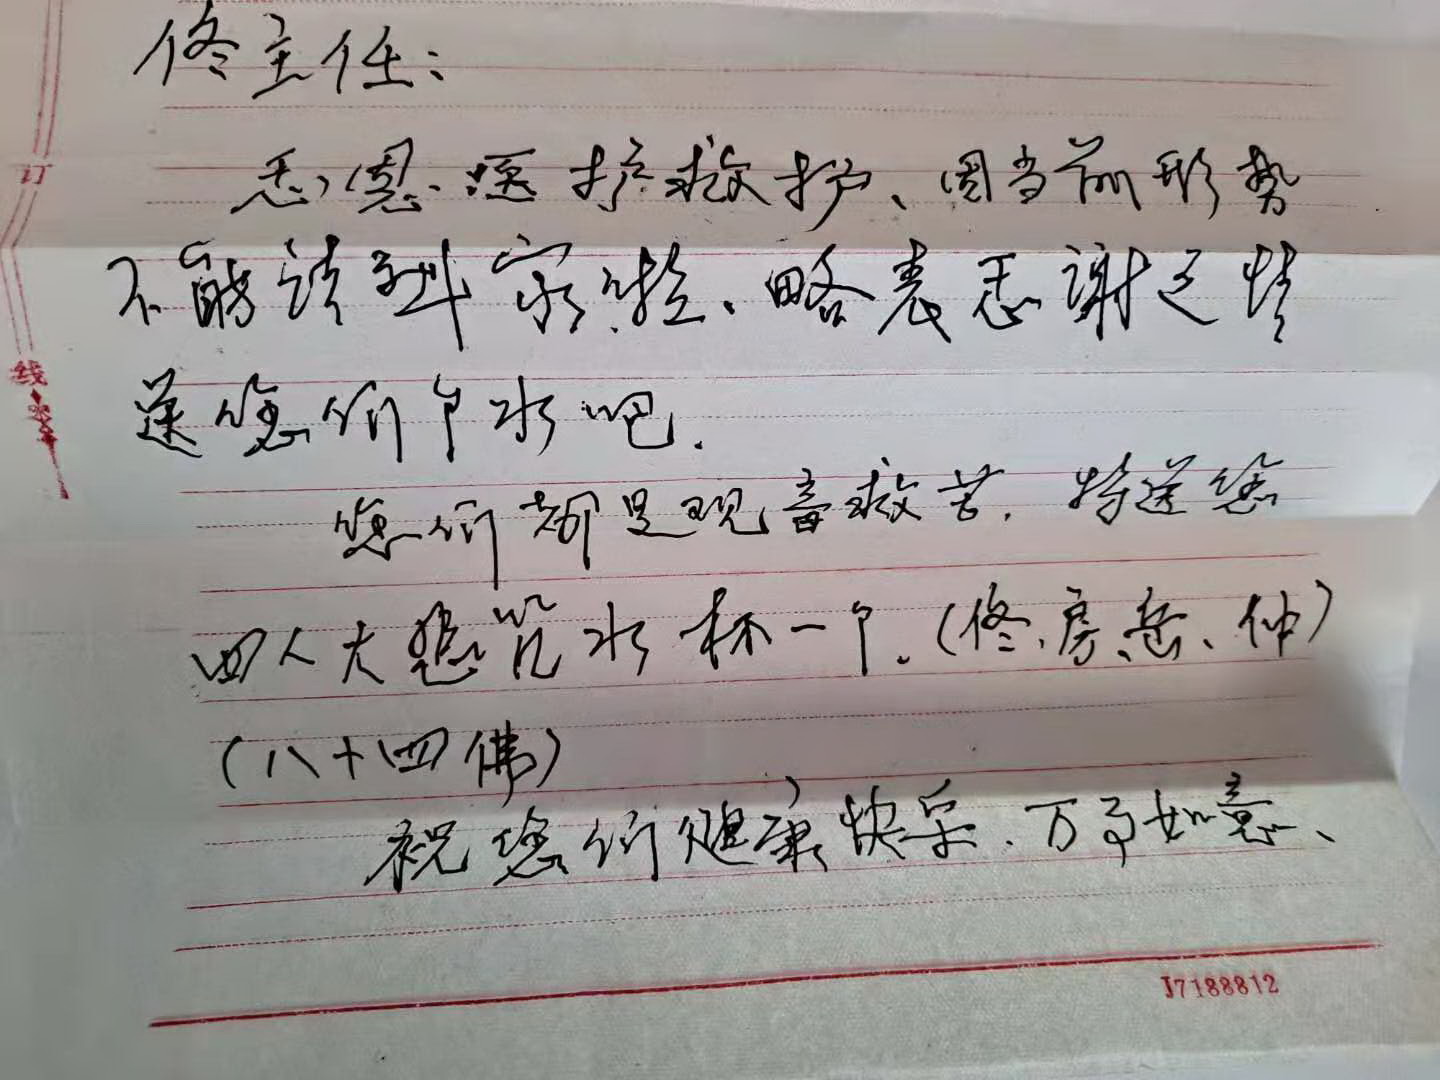 佟主任：
感恩医护救护、因当前形势
不能请到家啦、略表感谢之情
送您们个水吧.
您们都是观音救苦.特送您
四人大悲咒水杯一个.(佟、房、岳、仲)
(八十四佛)
祝您们健康快乐.万事如意、
订
线
J7188812